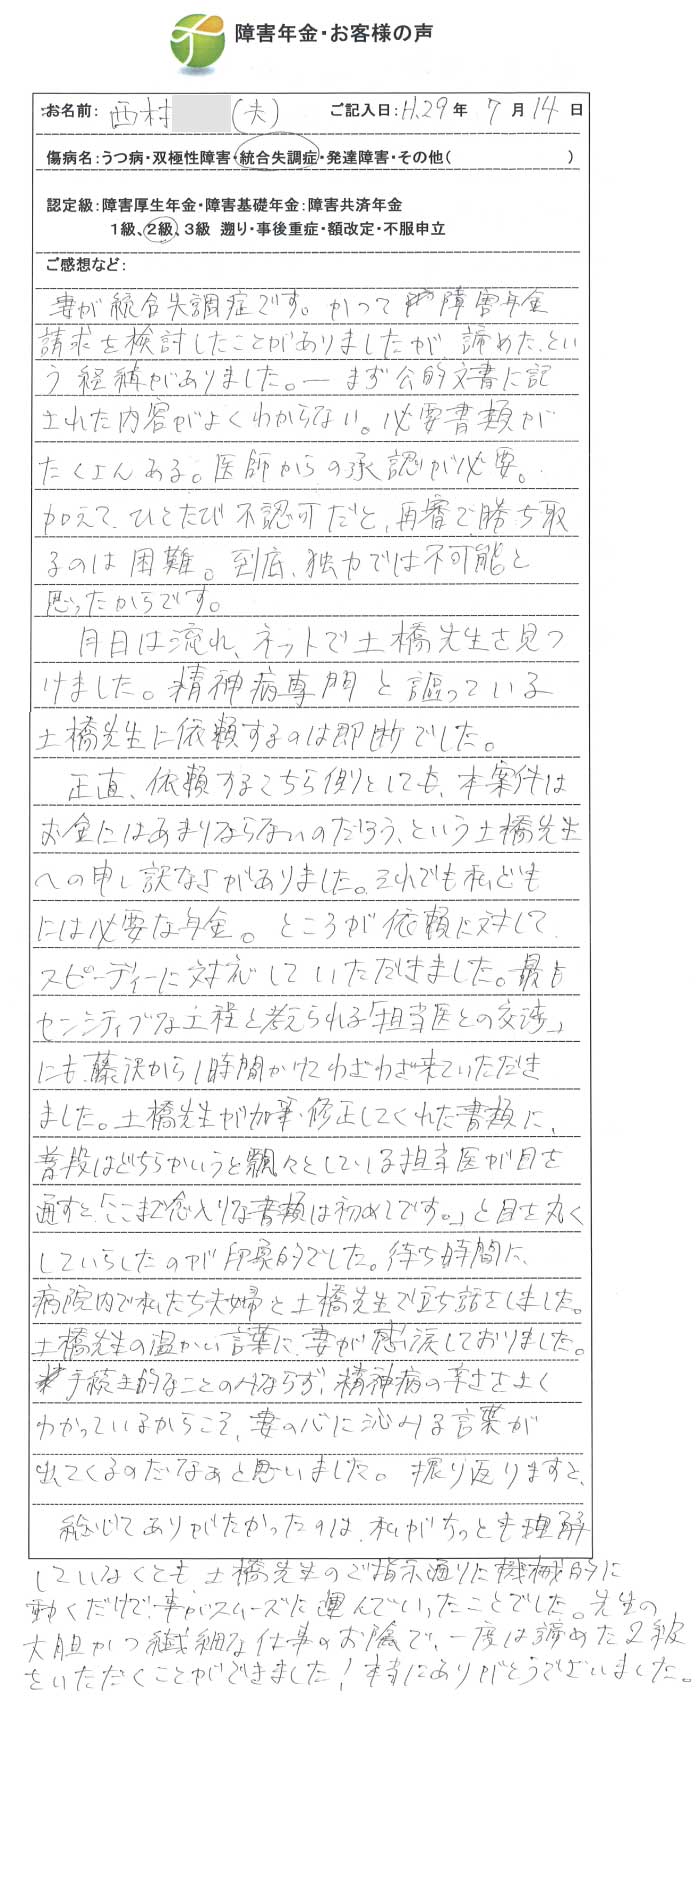 障害年金・お客様の声
お名前: 西村 (夫) ご記入日:H.29年 7月14日
傷病名:うつ病・双極性障害・統合失調症・発達障害・その他( )
認定級:障害厚生年金・障害基礎年金:障害共済年金
1級、2級、3級 遡り・事後重症・額改定・不服申立
ご感想など:
妻が統合失調症です。かつて 障害年金
請求を検討したことがありましたが 諦めた、とい
う経緯がありました。― まず公的文書に記
された内容がよくわからない。必要書類が
たくさんある。医師からの承認が必要。
加えて、ひとたび不認可だと、再審で勝ち取
るのは困難。到底、独力では不可能と
思ったからです。
月日は流れ、ネットで土橋先生を見つ
けました。精神病専門と謳っている
土橋先生に依頼するのは即断でした。
正直、依頼するこちら側としても、本案件は
お金にはあまりならないのだろう、という土橋先生
への申し訳なさがありました。それでも私ども
には必要な年金。ところが依頼に対して、
スピーディーに対応していただきました。最も
センシティブな工程と考えられる「担当医との交渉」
にも、藤沢から1時間かけてわざわざ来ていただき
ました。土橋先生が加筆・修正してくれた書類に、
普段はどちらかいうと飄々としている担当医が目を
通すと「ここまで念入りな書類は初めてです。」と目を丸く
していらしたのが印象的でした。待ち時間に、
病院内で私たち夫婦と土橋先生で立ち話をしました。
土橋先生の温かい言葉に、妻が感涙しておりました。
手続き的なことのみならず、精神病の辛さをよく
わかっているからこそ、妻の心に沁みる言葉が
出てくるのだなぁと思いました。振り返りますと、
総じてありがたかったのは、私がちっとも理解
していなくとも、土橋先生のご指示通りに機械的に
動くだけで、事がスムーズに運んでいったことでした。先生の
大胆かつ繊細な仕事のお陰で、一度は諦めた2級
をいただくことができました！本当にありがとうございました。